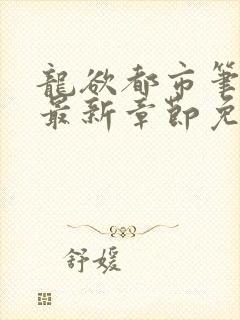 龍欲都市筆
最新章節免
舒媛